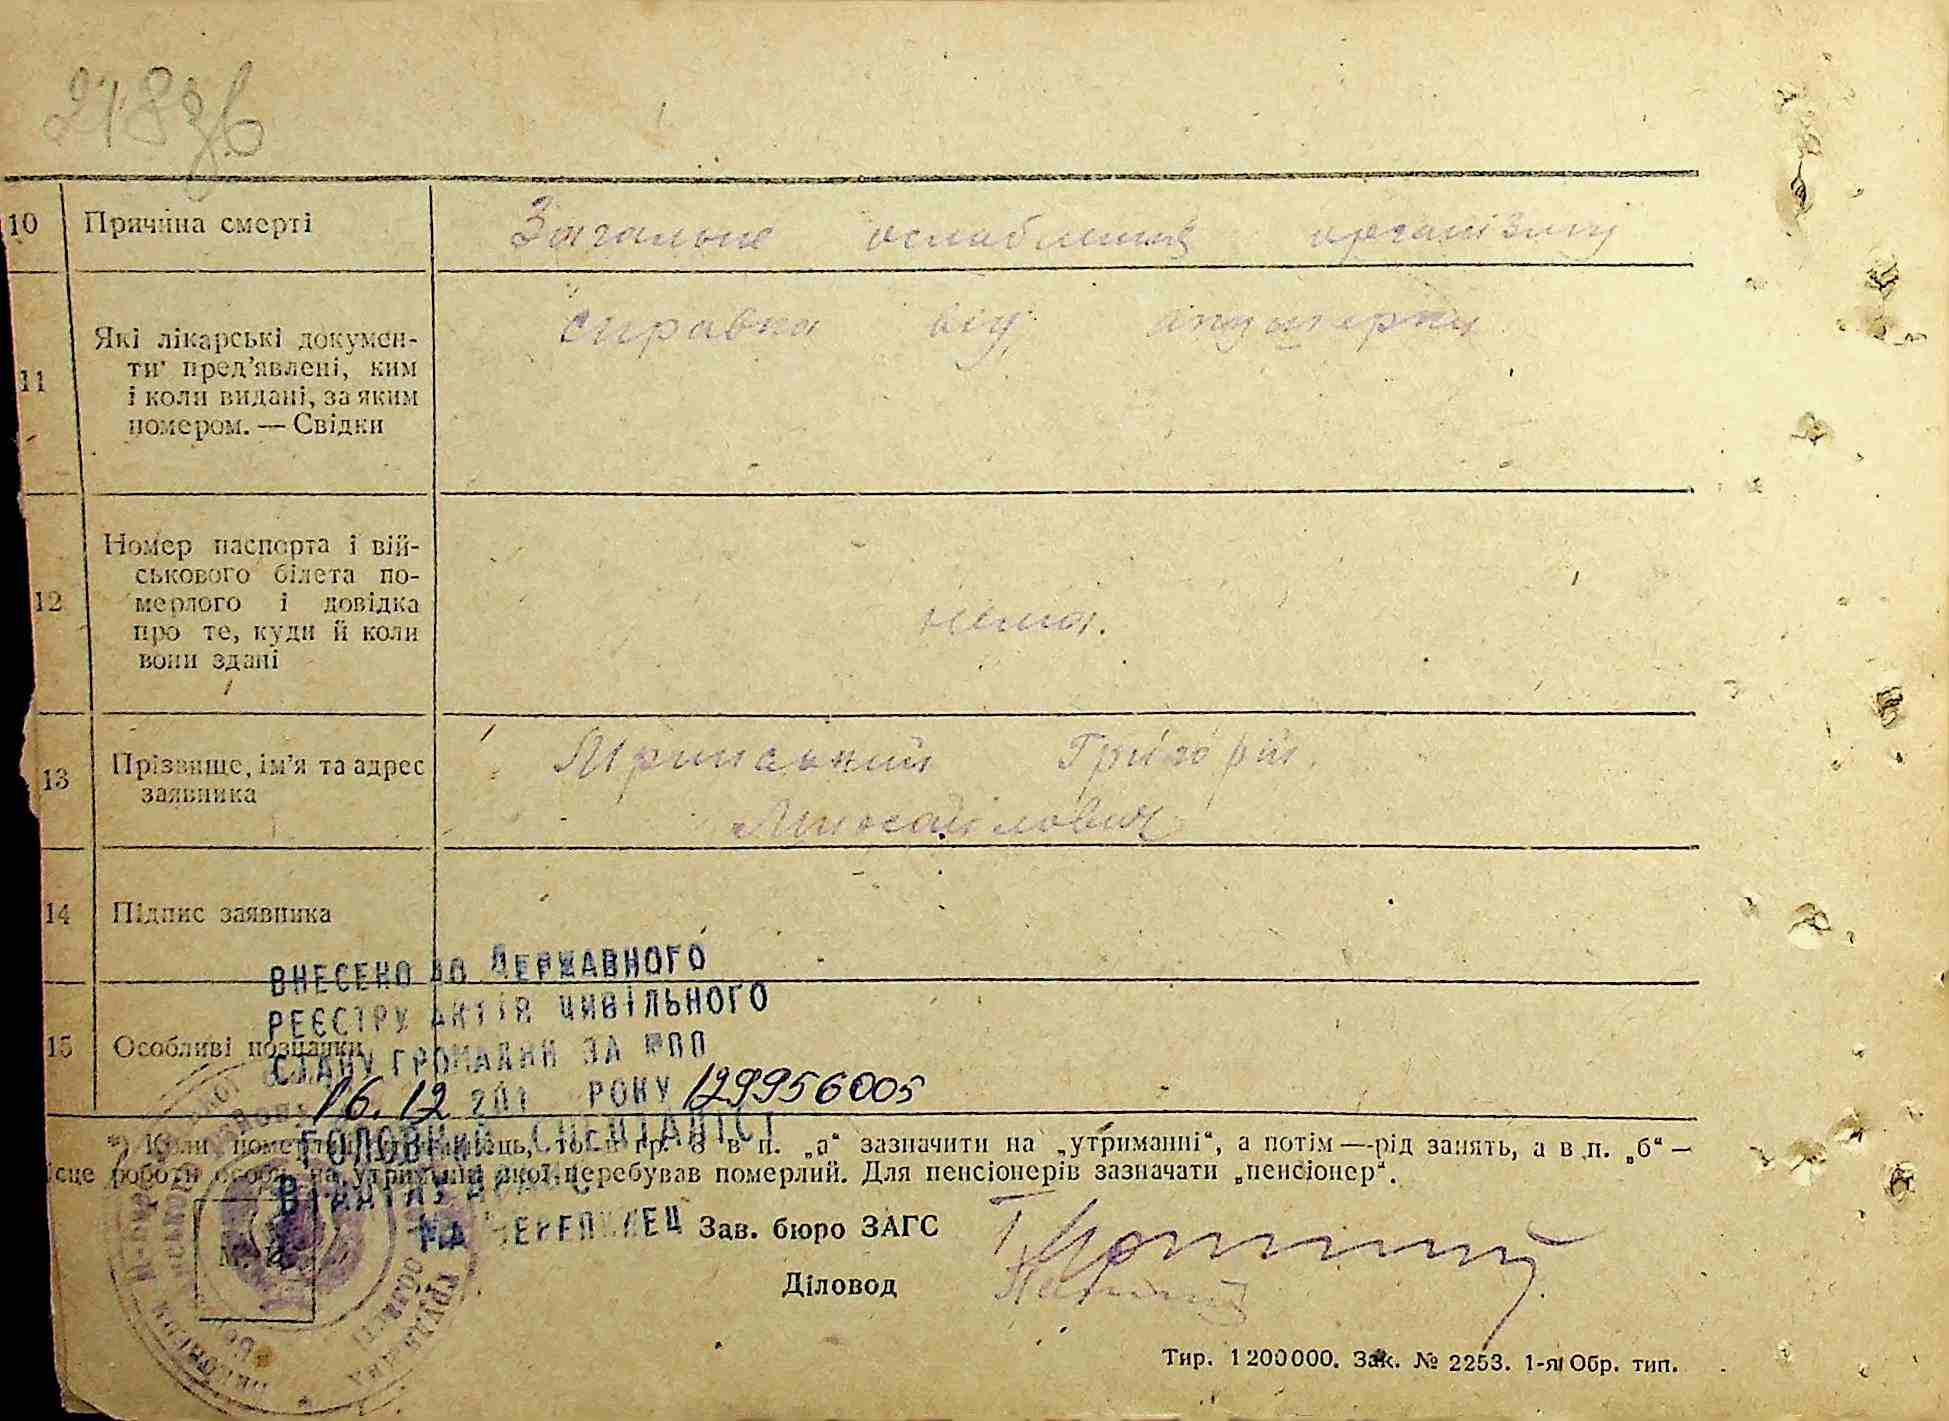 10 Причина смерті Загальне ослаблення організму
11 Які лікарські докумен-
ти пред’явлені, ким
і коли видані, за яким
номером. — Свідки
справка від акушерки
12 Номер паспорта і вій-
ськового білета по-
мерлого і довідка
про те, куди й коли
вони здані
нема.
13 Прізвище, ім’я та адрес
заявника
Григорій
Михайлович
14 Підпис заявника
ВНЕСЕНО ДО ДЕРЖАВНОГО
РЕЄСТРУ АКТІВ ЦИВІЛЬНОГО
15 Особливі познаки
СТАНУ ГРОМАДЯН ЗА №ПП
16.12 201 РОКУ 129956005
ГОЛОВНИЙ СПЕЦІАЛІСТ
*) Коли померлий то в гр. 8 в п. „а“ зазначити на „утриманні“, а потім — рід занять, а в п. „б“ —
роботи особи, на утриманні якої перебував померлий. Для пенсіонерів зазначати „пенсіонер“.
ВІДДІЛУ ДРАЦС
Зав. бюро ЗАГС
М. П.
Діловод
Тир. 1200000. Зак. № 2253. 1-я Обр. тип.